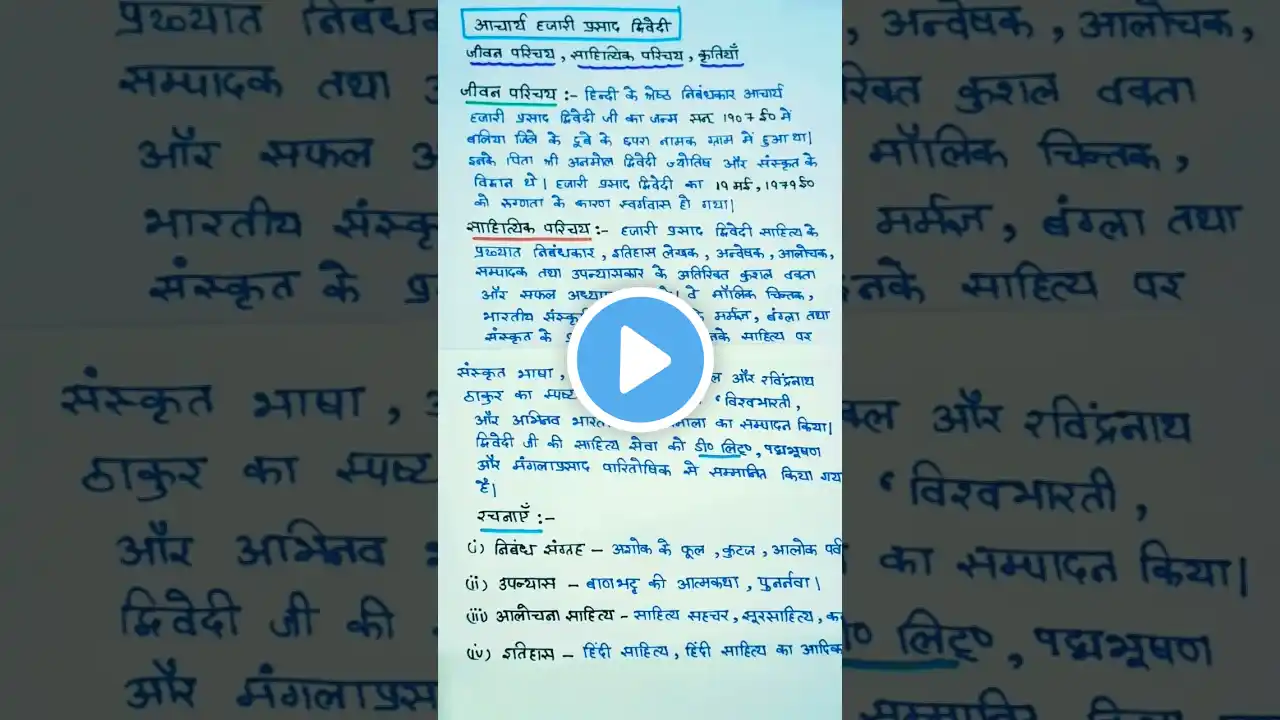 आचार्य हजारी प्रसाद द्विवेदी
जीवन परिचय, साहित्यिक परिचय, कृतियाँ
जीवन परिचय :- हिन्दी के श्रेष्ठ निबंधकार आचार्य
हजारी प्रसाद द्विवेदी जी का जन्म सन् 1907 ई० में
बलिया जिले के दूबे के छपरा नामक ग्राम में हुआ था।
इनके पिता श्री अनमोल द्विवेदी ज्योतिष और संस्कृत के
विद्वान थे। हजारी प्रसाद द्विवेदी का 19 मई, 1979 ई०
को रुग्णता के कारण स्वर्गवास हो गया।
साहित्यिक परिचय :- हजारी प्रसाद द्विवेदी साहित्य के
प्रख्यात निबंधकार, इतिहास लेखक, अन्वेषक, आलोचक,
सम्पादक तथा उपन्यासकार के अतिरिक्त कुशल वक्ता
और सफल वे मौलिक चिन्तक,
भारतीय मर्मज्ञ, बंग्ला तथा
संस्कृत के साहित्य पर
संस्कृत भाषा, और रविंद्रनाथ
ठाकुर का 'विश्वभारती,
और अभिनव का सम्पादन किया।
द्विवेदी जी की साहित्य सेवा को डी० लिट्०, पद्मभूषण
और मंगलाप्रसाद पारितोषिक से सम्मानित किया गय
है।
रचनाएँ :-
(i) निबंध संग्रह - अशोक के फूल, कुटज, आलोक पर्व
(ii) उपन्यास - बाणभट्ट की आत्मकथा, पुनर्नवा।
(iii) आलोचना साहित्य - साहित्य सहचर, सूरसाहित्य, क
(iv) इतिहास - हिंदी साहित्य, हिंदी साहित्य का आदिक